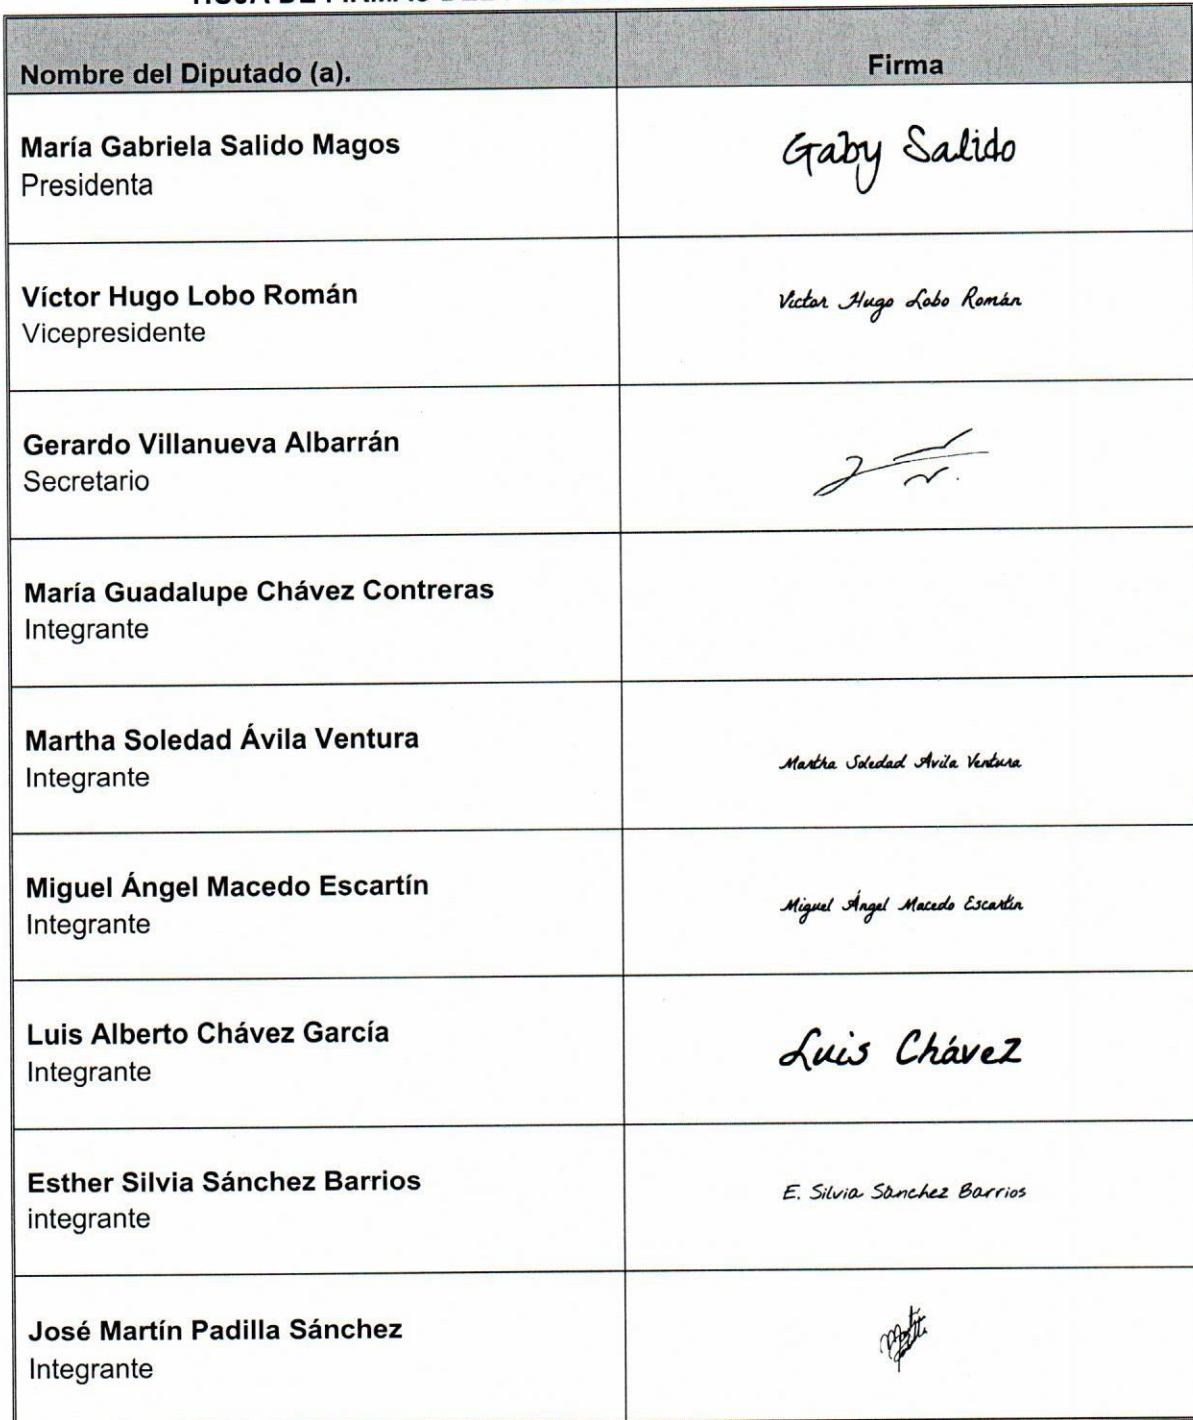 Nombre del Diputado (a). Firma
María Gabriela Salido Magos
Presidenta
Gaby Salido
Víctor Hugo Lobo Román
Vicepresidente
Victor Hugo Lobo Román
Gerardo Villanueva Albarrán
Secretario
María Guadalupe Chávez Contreras
Integrante
Martha Soledad Ávila Ventura
Integrante
Martha Soledad Avila Ventura
Miguel Ángel Macedo Escartín
Integrante
Miguel Ángel Macedo Escartín
Luis Alberto Chávez García
Integrante
Luis Chávez
Esther Silvia Sánchez Barrios
integrante
E. Silvia Sánchez Barrios
José Martín Padilla Sánchez
Integrante